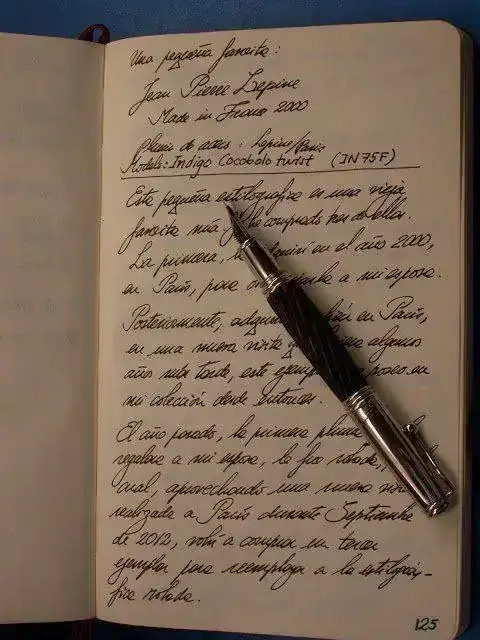 Una pequeña favorita:
Jean Pierre Lepine
Made in France 2000
Plumín de acero: Lepine/Paris
Modelo: Indigo Cocobolo twist (IN75F)
Esta pequeña estilográfica es una vieja
favorita mía y he comprado tres de ellas.
La primera, la adquirí en el año 2000,
en París, para a mi esposa.
Posteriormente, en París,
en una nueva visita algunos
años más tarde, este poseo en
mi colección desde entonces.
El año pasado, la primera pluma
regalara a mi esposa, le fue robada,
cual, aprovechando una nueva
realizada a París durante Septiembre
de 2012, volví a comprar un tercer
ejemplar para reemplazar a la estilográ-
fica robada.
125